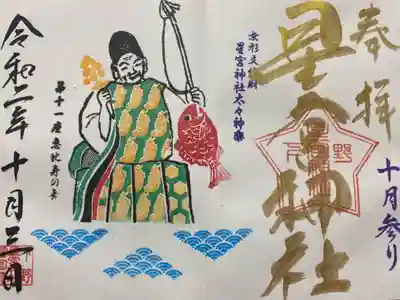 奉拝
十月参り
星宮神社
無形文化財
星宮神社太々神楽
第十一座恵比寿の舞
令和二年十月三日